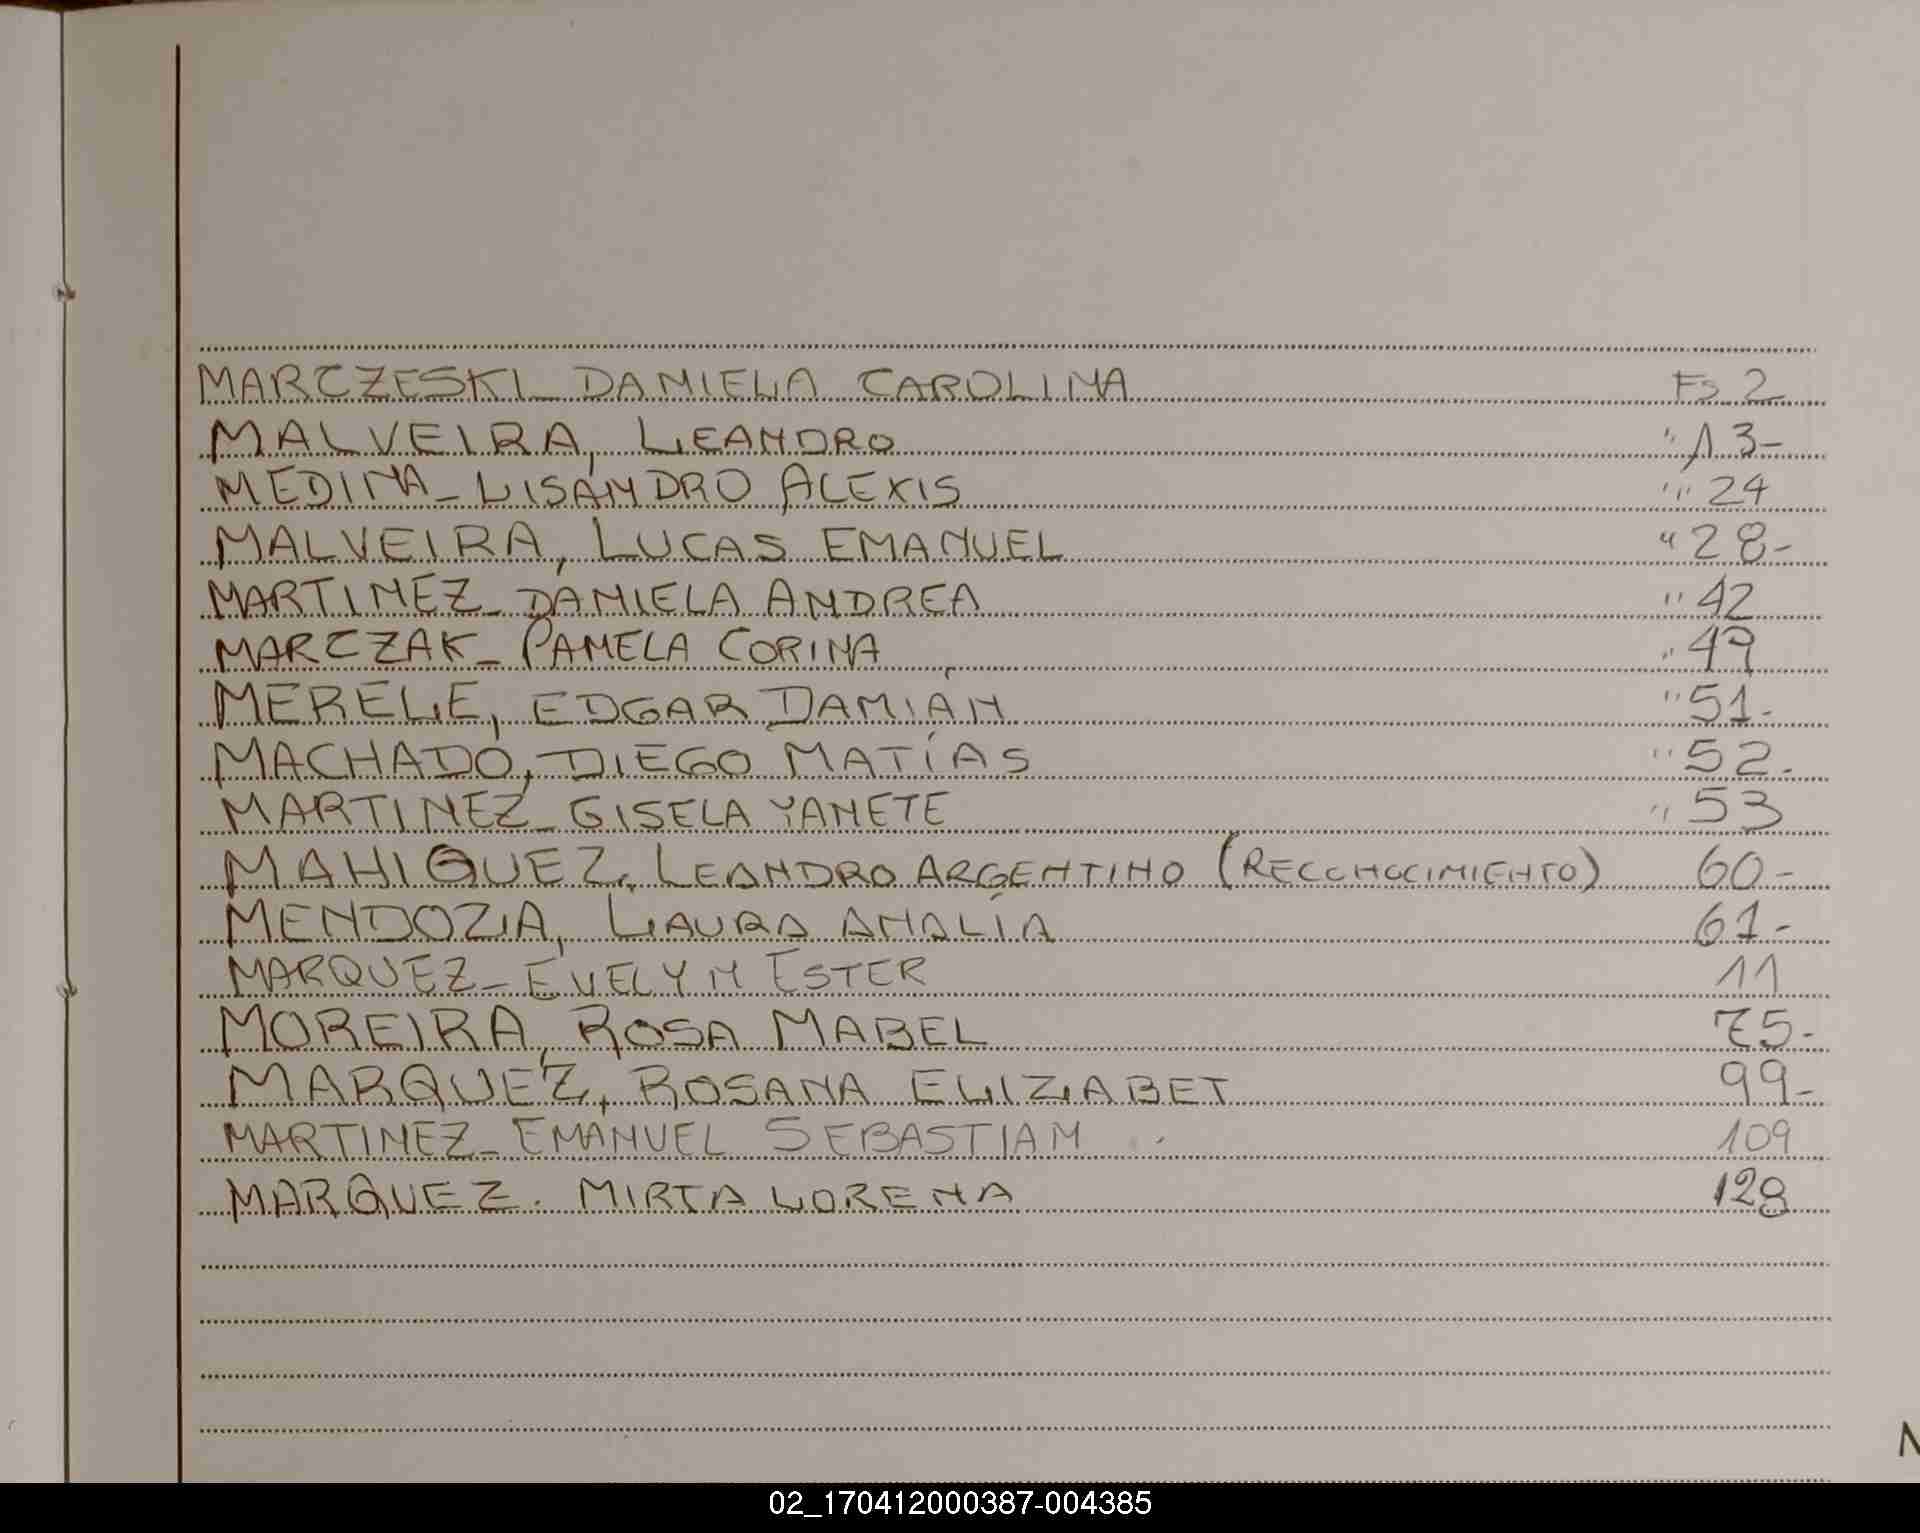 MARCZESKI DANIELA CAROLINA Fs. 2
MALVEIRA, LEANDRO " 13-
MEDINA - LISANDRO ALEXIS " 24
MALVEIRA, LUCAS EMANUEL " 28-
MARTINEZ - DANIELA ANDREA " 42
MARCZAK - PAMELA CORINA " 49
MERELE, EDGAR DAMIÁN " 51-
MACHADO, DIEGO MATÍAS " 52.
MARTINEZ - GISELA YANETE " 53
MAHIQUEZ, LEANDRO ARGENTINO (RECONOCIMIENTO) 60-
MENDOZA, LAURA ANALÍA 61-
MARQUEZ - EVELYN ESTER 11
MOREIRA, ROSA MABEL 75-
MARQUEZ, ROSANA ELIZABET 99-
MARTINEZ - EMANUEL SEBASTIAN 109
MARQUEZ. MIRTA LORENA 128
02_170412000387-004385